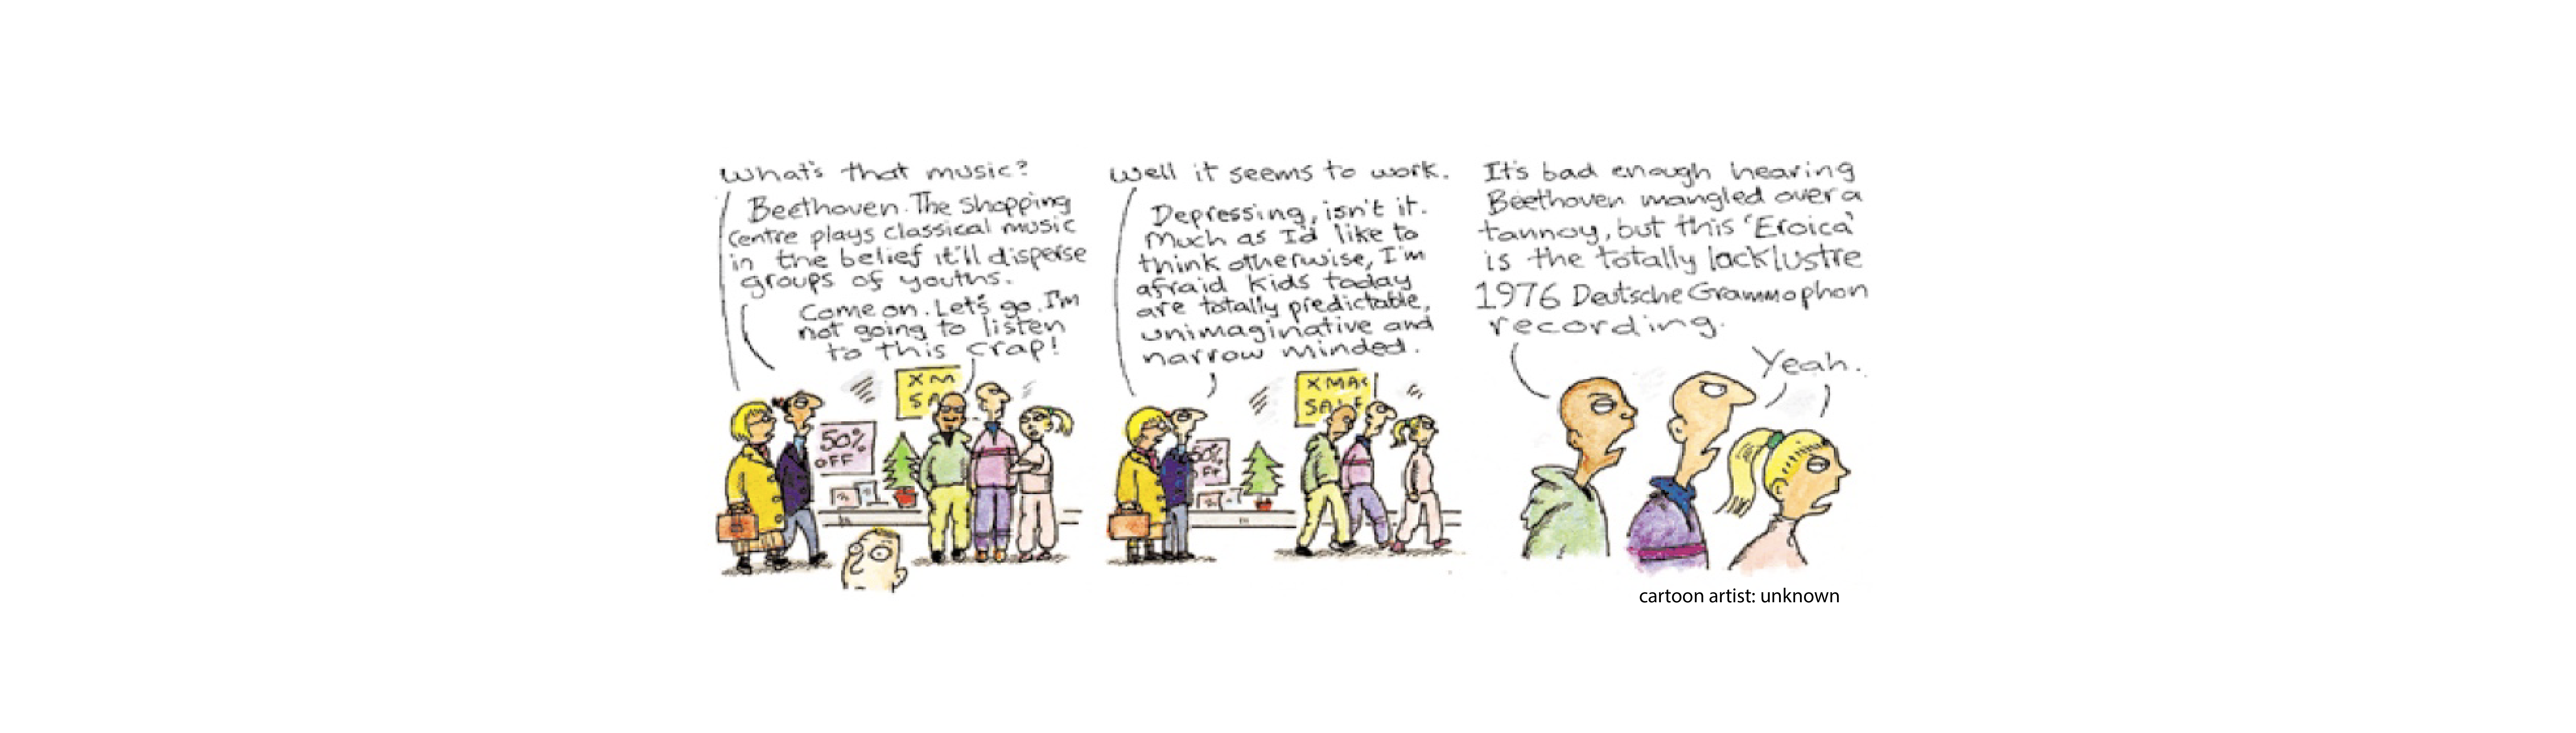 What's that music?
Beethoven. The Shopping
Centre plays classical music
in the belief it'll disperse
groups of youths.
Come on. Let's go. I'm
not going to listen
to this crap!
50%
OFF
XM
SA
Well it seems to work.
Depressing, isn't it.
Much as I'd like to
think otherwise, I'm
afraid kids today
are totally predictable,
unimaginative and
narrow minded.
50%
OFF
XMAS
SALE
It's bad enough hearing
Beethoven mangled over a
tannoy, but this 'Eroica'
is the totally lacklustre
1976 Deutsche Grammophon
recording.
Yeah.
cartoon artist: unknown